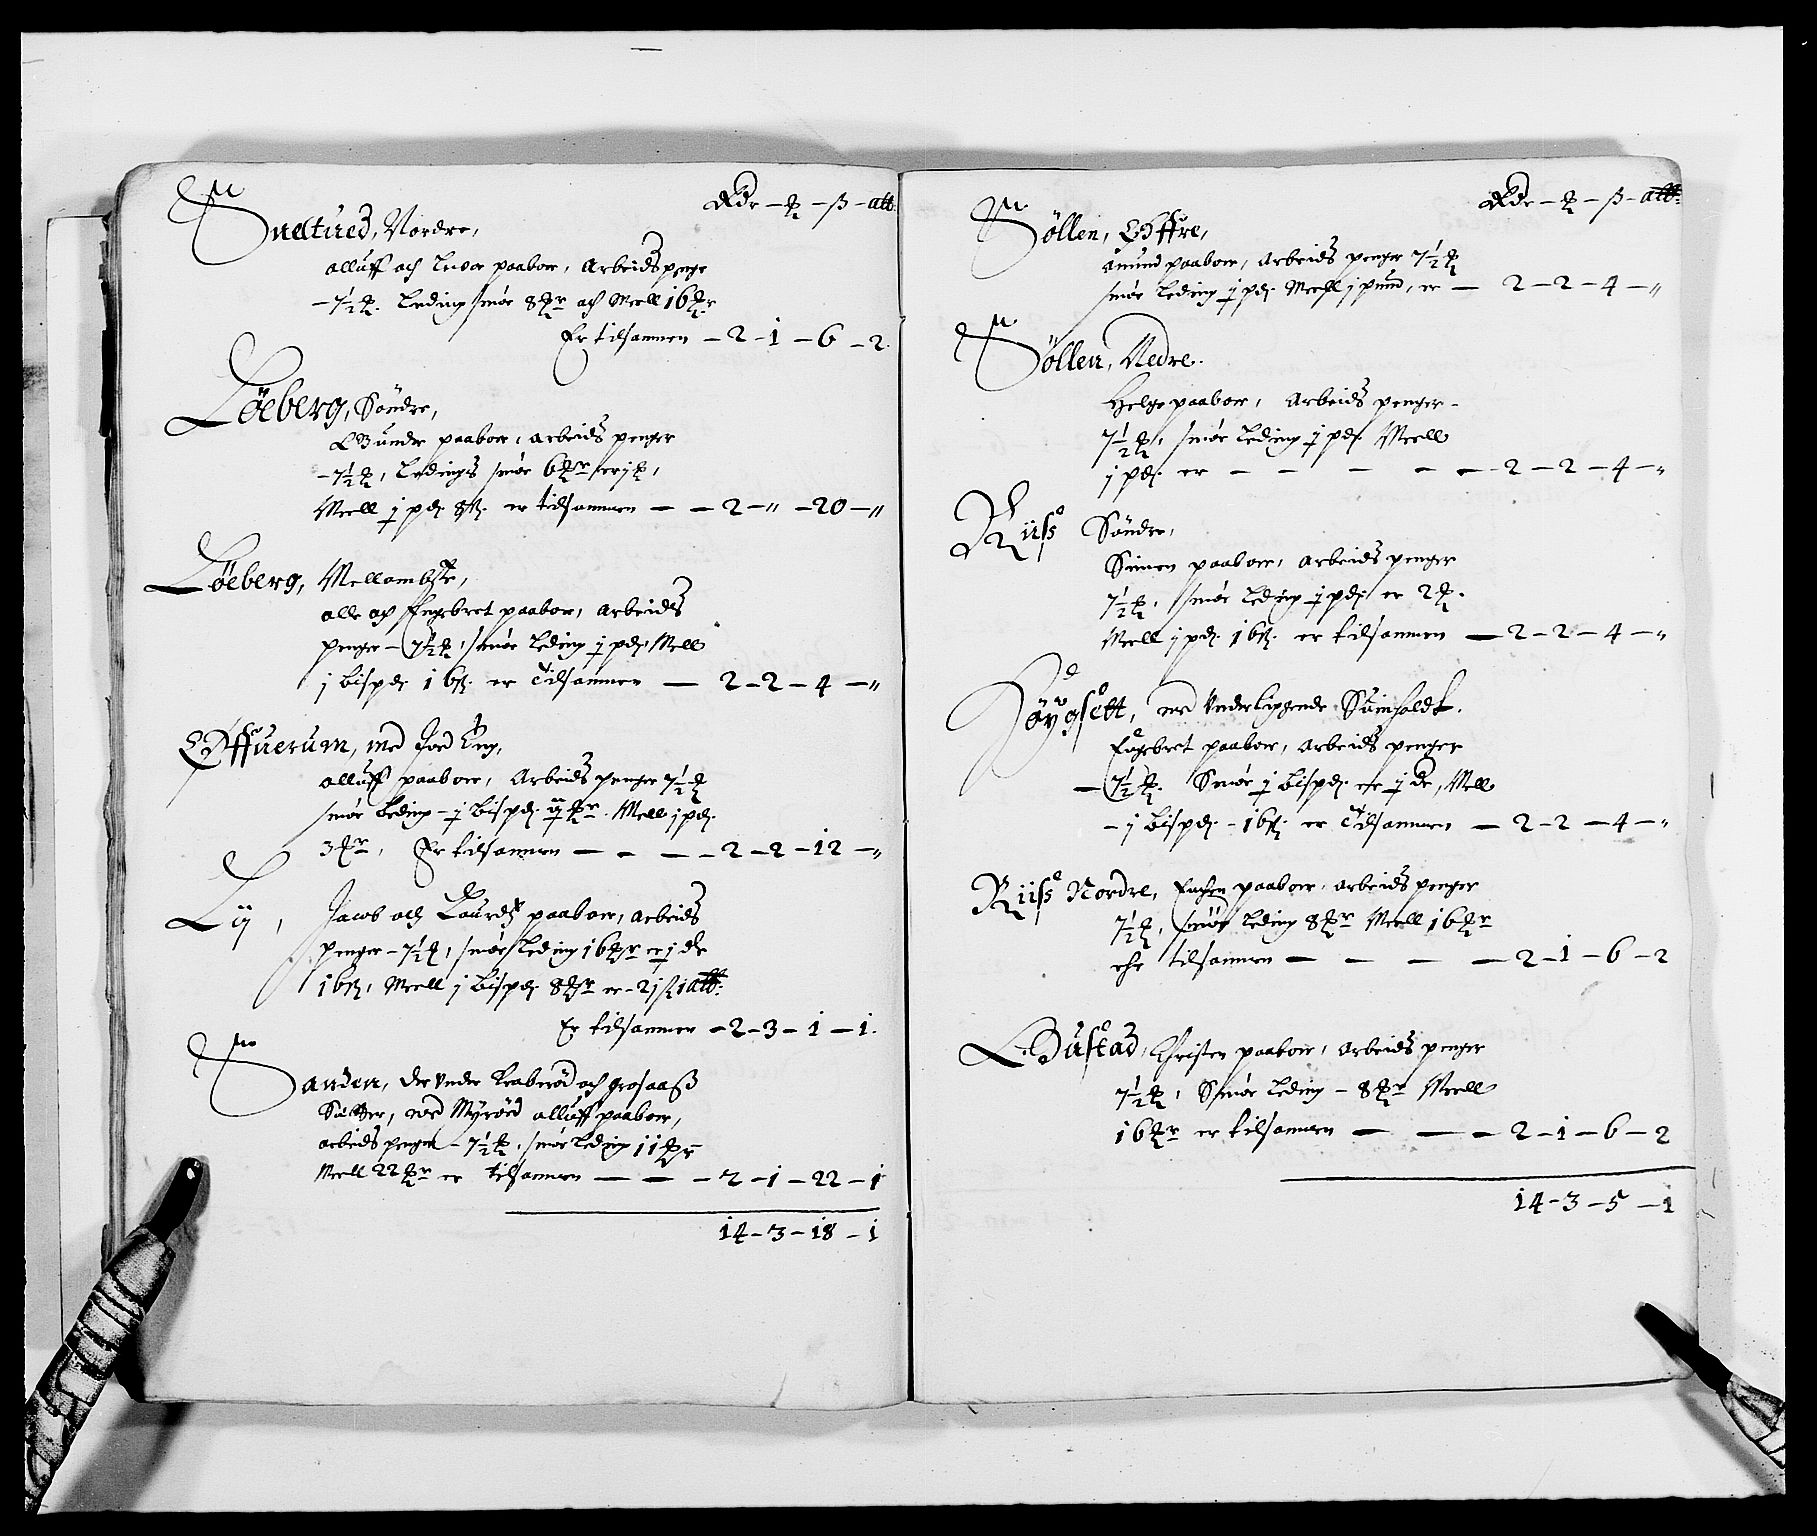 Rdr – ℔ – ß – alb:
Sneltued, Nordre,
alluff och Iuor paaboer, Arbeids penge
– 7½ ℔. Leding smør 8 ℔r och Meell 16 ℔r
Er tilsammen – 2 – 1 – 6 – 2.
Løeberg, Søndre,
Gunder paaboer, arbeids penger
– 7½ ℔, Ledings smør 6 ℔r er j ℔,
Meell j pd. 8 ß. er tilsammen – – 2 – " – 20 – "
Løeberg, Mellombste,
olle och Engebret paaboer, Arbeids
penger – 7½ ℔, smør leding j pd. Mell
j bispd. 16 ß. er Tilsammen — 2 – 2 – 4 – "
Øffuerum, med Jord Eng,
alluff paaboer, Arbeids penger 7½ ℔
smør leding – j bispd. ij ℔r. Mell j pd.
3 ℔r, Er tilsammen – – – – 2 – 2 – 12 – "
Ly, Jacob och Laurdtz paaboer, arbeids
penger – 7½ ℔, smør leding 16 ℔r er j dr
16 ß, Meell j bispd. 8 ℔r er – 21 ß 1 alb:
Er tilsammen – 2 – 3 – 1 – 1.
Sanden, der under Kraberød och grosaas
Sætter, med Myrørd alluff paaboer,
arbeids penger – 7½ ℔. smør leding 11 ℔r
Meell 22 ℔r er tilsammen — — – 2 – 1 – 22 – 1
14 – 3 – 18 – 1
Rdr – ℔ – ß – alb:
Søllen, Øffre,
Amund paaboer, Arbeids penger 7½ ℔
smør leding j pd. Meell j pund, er — 2 – 2 – 4 – "
Søllen, Nedre.
Helge paaboer, Arbeids penger –
7½ ℔, smør leding j pd. Meell
j pd. er – – – – – 2 – 2 – 4 – "
Riiss Søndre,
Simen paaboer, Arbeids penger
7½ ℔, smør leding j pd. er 2 ℔.
Meell j pd. 16 ß. er tilsammen — 2 – 2 – 4 – "
Høygsett, med Underliggende Suinholdt.
Engebret paaboer, Arbeids penger
– 7½ ℔. Smør j bispd. er j dr, Mell
– j bispd. – 16 ß. er Tilsammen — 2 – 2 – 4 – "
Riiss Nordre, paaboer, arbeids penger
7½ ℔, smør leding 8 ℔r Meell 16 ℔r
ehr tilsammen – – – – 2 – 1 – 6 – 2
Bustad, Christen paaboer, Arbeids penger
7½ ℔, Smør leding – 8 ℔r Meell
16 ℔r er tilsammen — — – 2 – 1 – 6 – 2
14 – 3 – 5 – 1